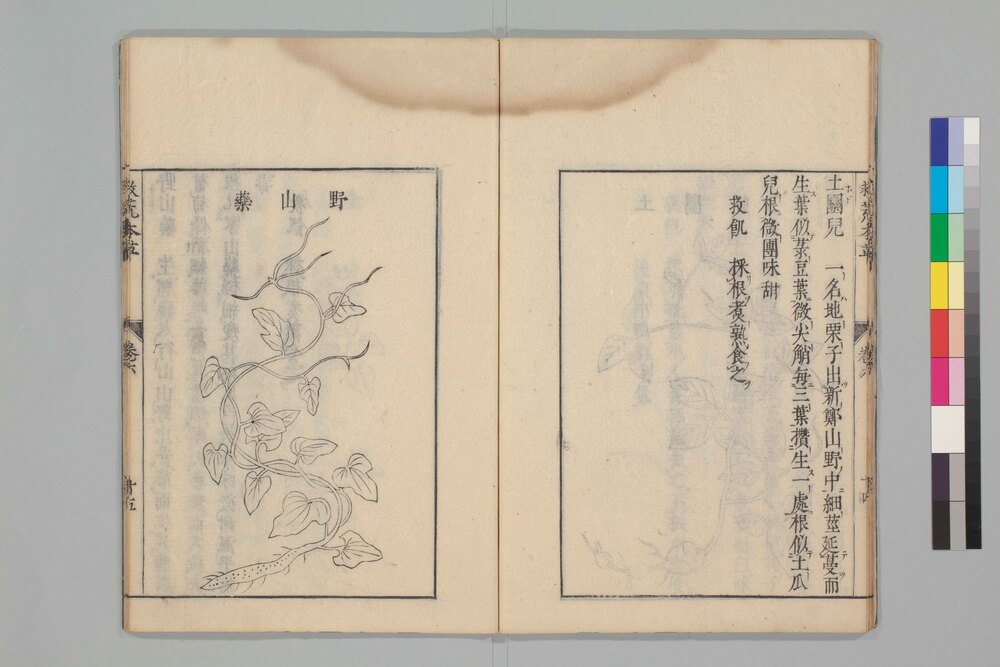 土圞兒　一名地栗子出新鄭山野中細莖延蔓而
生葉似菉豆葉微尖觧每三葉攢生一處根似土瓜
兒根微團味甜
救飢　採根煮熟食之
野山藥
救荒本草
卷六